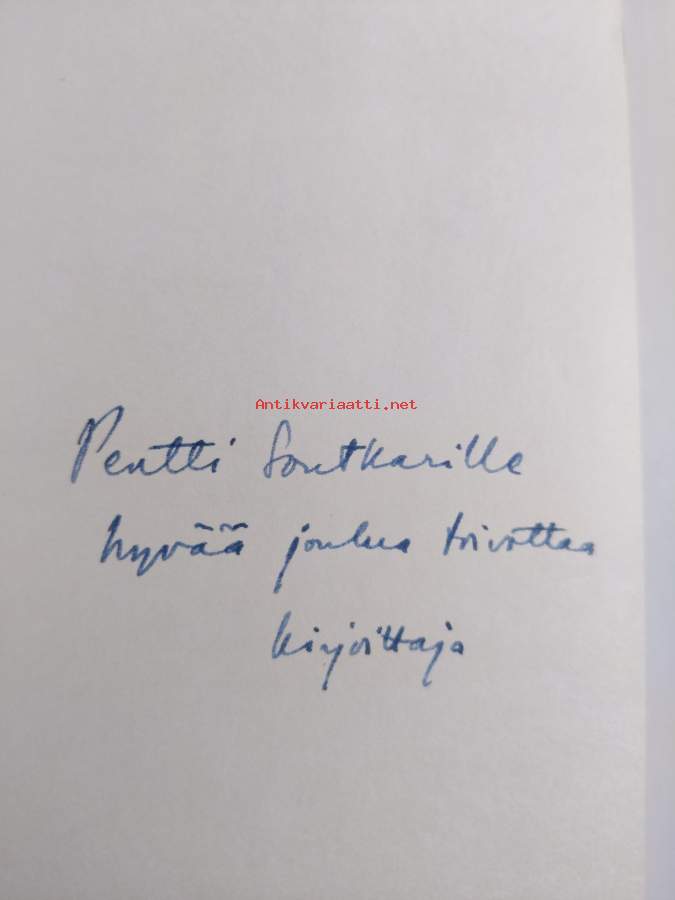 Antikvariaatti.net
Pentti Soutkarille
hyvää joulua toivottaa
kirjoittaja